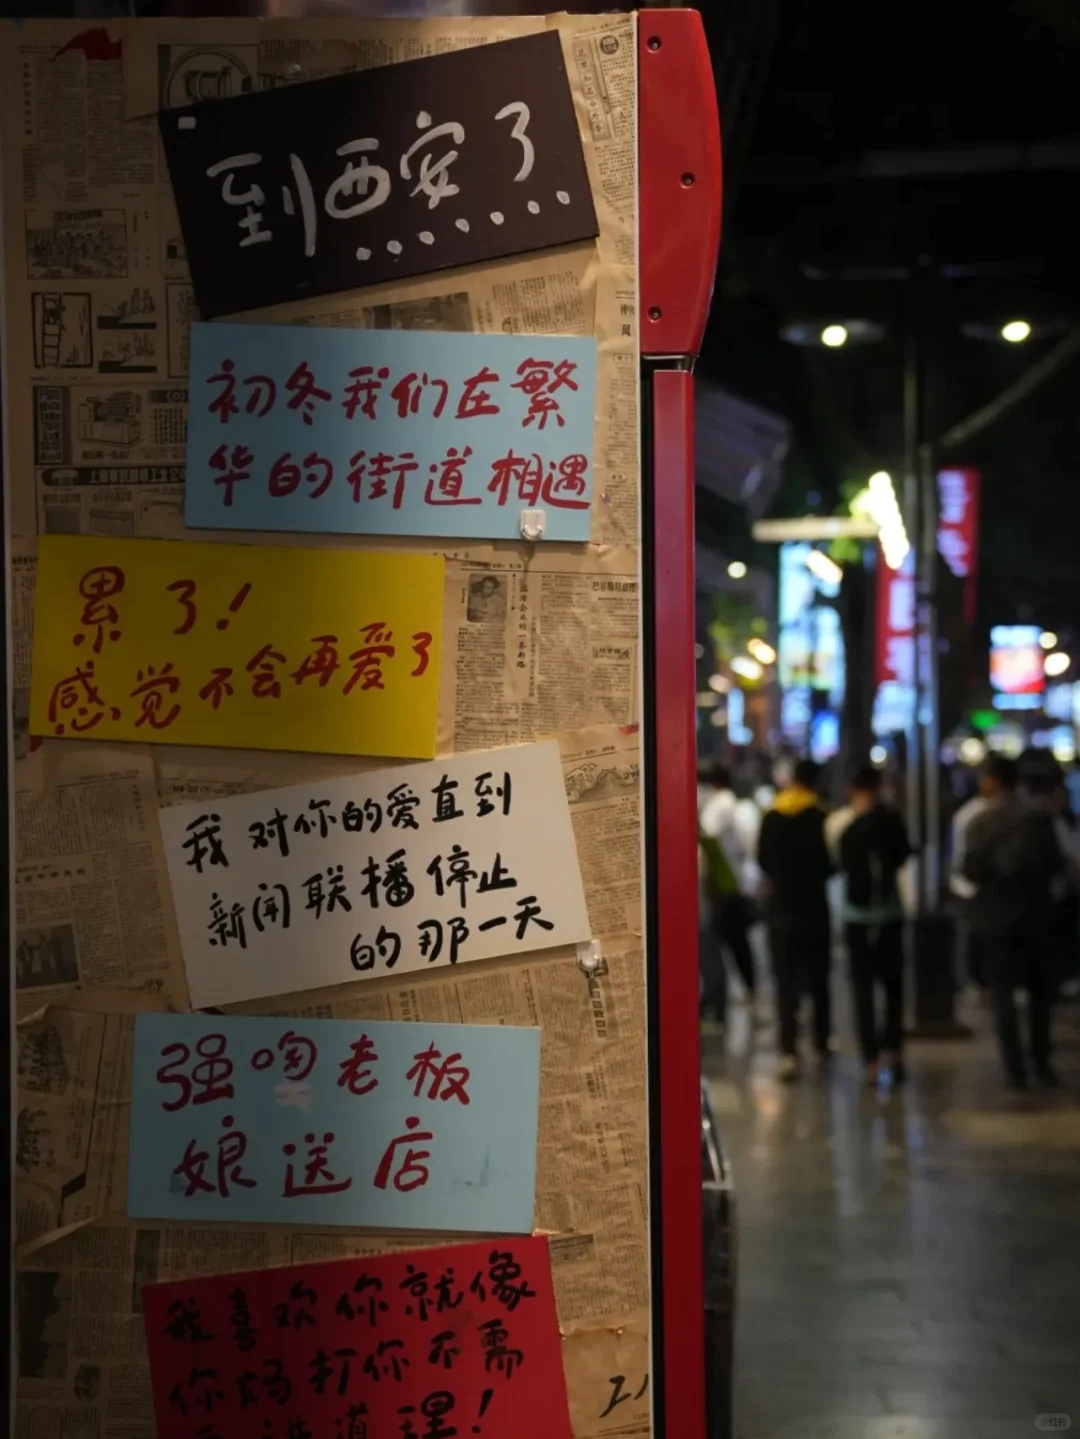 到西安了......
初冬我们在繁
华的街道相遇
累了!
感觉不会再爱了
我对你的爱直到
新闻联播停止
的那一天
强吻老板
娘送店
我喜欢你就像
你妈打你不需
道理!
小红书